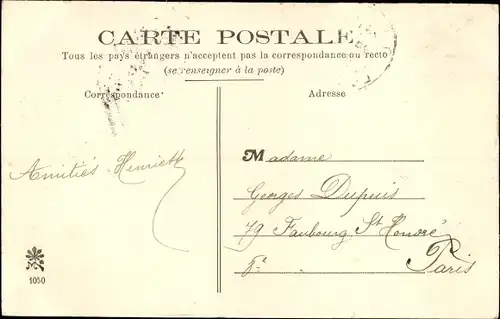 CARTE POSTALE
Tous les pays étrangers n'acceptent pas la correspondance au recto
(se renseigner à la poste)
Correspondance
Adresse
Madame
Amitiés Henriette
Georges Dupuis
79 Faubourg St Honoré
Paris
1050